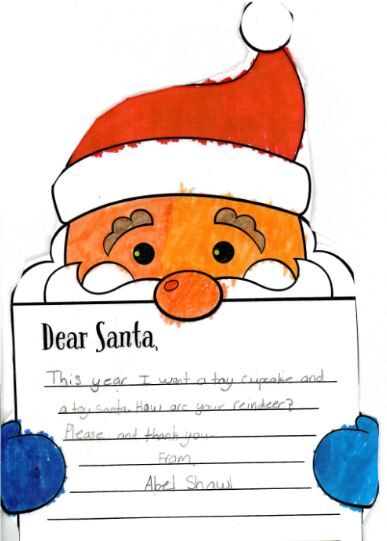 Dear Santa,
This year I want a toy cupcake and
a toy santa. How are your reindeer?
Please and thank you.
From,
Abel Shawl